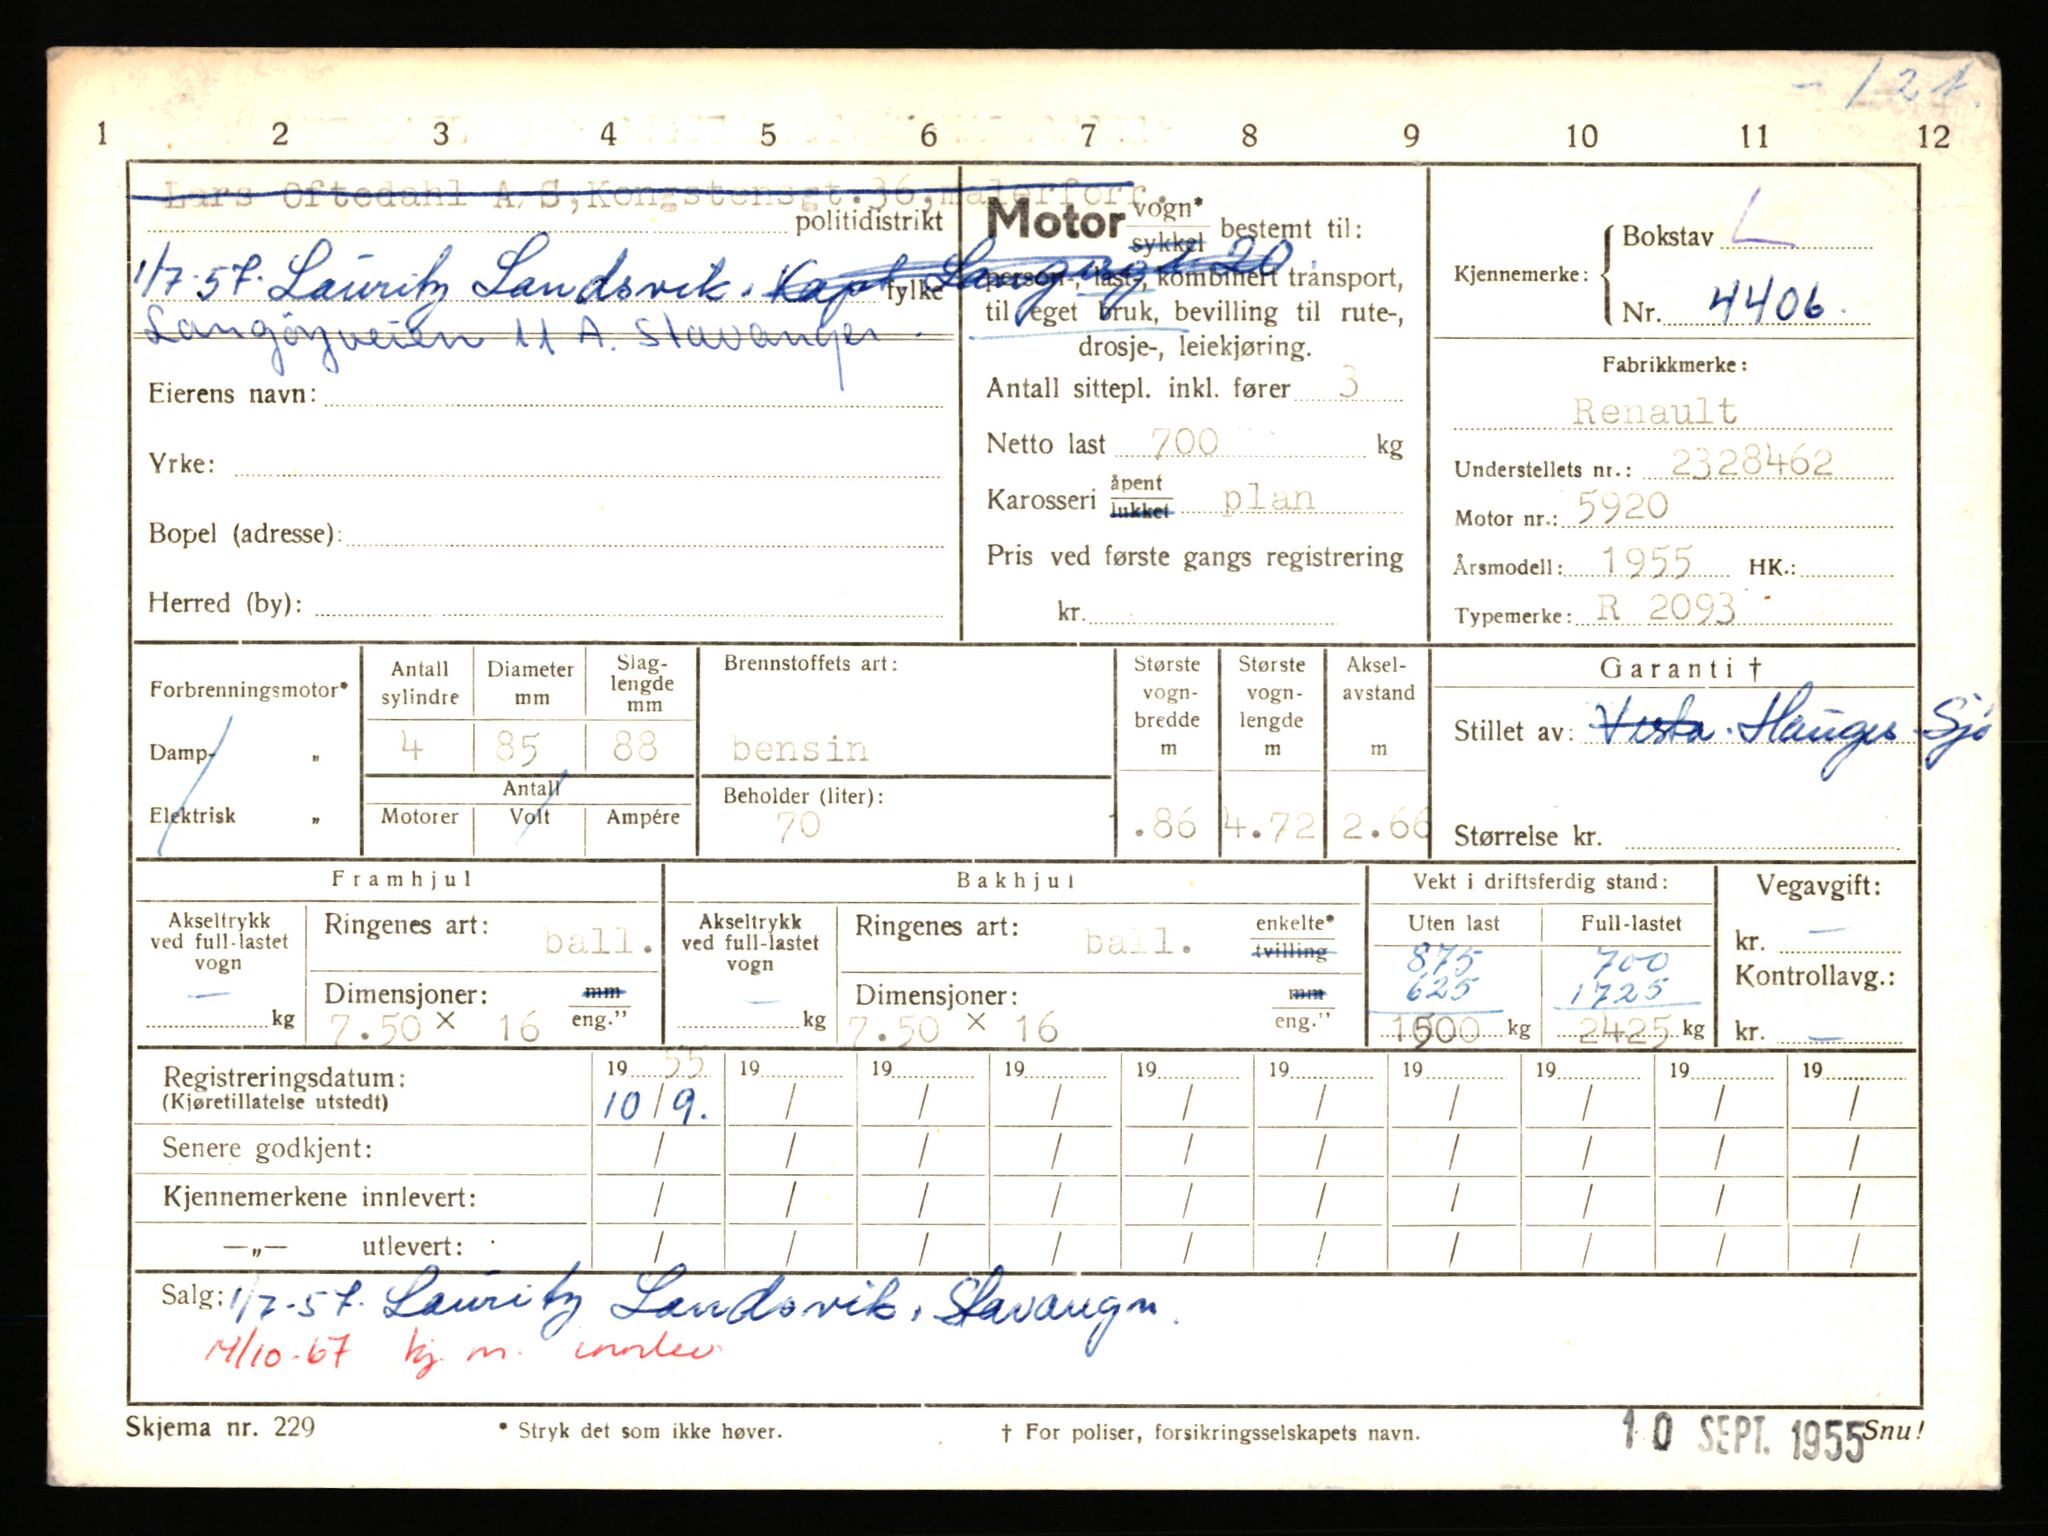 - 121.
1 2 3 4 5 6 7 8 9 10 11 12
Lars Oftedahl A/S, Kongstensgt. 36, malerforr.
politidistrikt
1/7-57. Lauritz Landsvik. Kapt Langesgt 20.
fylke
Langøyveien 11 A. Stavanger.
Eierens navn:
Yrke:
Bopel (adresse):
Herred (by):
Motor vogn* sykkel bestemt til:
person-, last-, kombinert transport,
til eget bruk, bevilling til rute-,
drosje-, leiekjøring.
Antall sittepl. inkl. fører 3
Netto last 700 kg
Karosseri åpent lukket plan
Pris ved første gangs registrering
kr.
Kjennemerke: Bokstav L
Nr. 4406.
Fabrikkmerke:
Renault
Understellets nr.: 2328462
Motor nr.: 5920
Årsmodell: 1955 HK.:
Typemerke: R 2093
Forbrenningsmotor*
Damp- "
Elektrisk "
Antall sylindre Diameter mm Slag-lengde mm
4 85 88
Antall
Motorer Volt Ampére
Brennstoffets art:
bensin
Beholder (liter):
70
Største vogn-bredde m
1.86
Største vogn-lengde m
4.72
Aksel-avstand m
2.66
Garanti †
Stillet av: Vesta. Hauges Sjø
Størrelse kr.
Framhjul
Akseltrykk ved full-lastet vogn
— kg
Ringenes art: ball.
Dimensjoner: mm
7.50 x 16 eng."
Bakhjul
Akseltrykk ved full-lastet vogn
— kg
Ringenes art: ball. enkelte* tvilling
Dimensjoner: mm
7.50 x 16 eng."
Vekt i driftsferdig stand:
Uten last Full-lastet
875 700
625 1725
1500 kg 2425 kg
Vegavgift:
kr. —
Kontrollavg.:
kr. —
Registreringsdatum: 19 55 19 19 19 19 19 19 19 19 19
(Kjøretillatelse utstedt) 10/9. / / / / / / / / /
Senere godkjent: / / / / / / / / / /
Kjennemerkene innlevert: / / / / / / / / / /
—"— utlevert: / / / / / / / / / /
Salg: 1/7-57. Lauritz Landsvik, Stavanger.
/10-67 kj. m. innlev
Skjema nr. 229 * Stryk det som ikke høver. † For poliser, forsikringsselskapets navn. 10 SEPT. 1955 Snu!